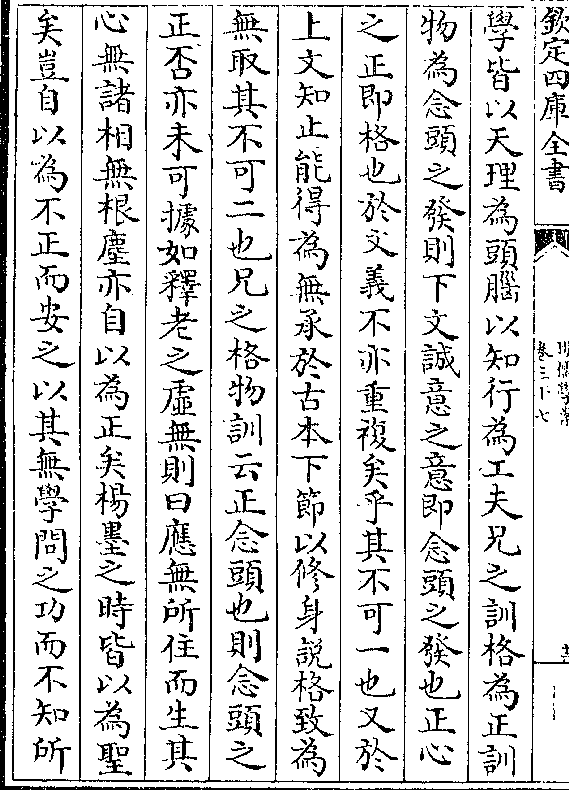 欽定四庫全書
明儒學案
卷三十七
學皆以天理為頭腦以知行為工夫兄之訓格為正訓
物為念頭之發則下文誠意之意即念頭之發也正心
之正即格也於文義不亦重複矣乎其不可一也又於
上文知止能得為無承於古本下節以修身説格致為
無取其不可二也兄之格物訓云正念頭也則念頭之
正否亦未可據如釋老之虛無則曰應無所住而生其
心無諸相無根塵亦自以為正矣楊墨之時皆以為聖
矣豈自以為不正而安之以其無學問之功而不知所